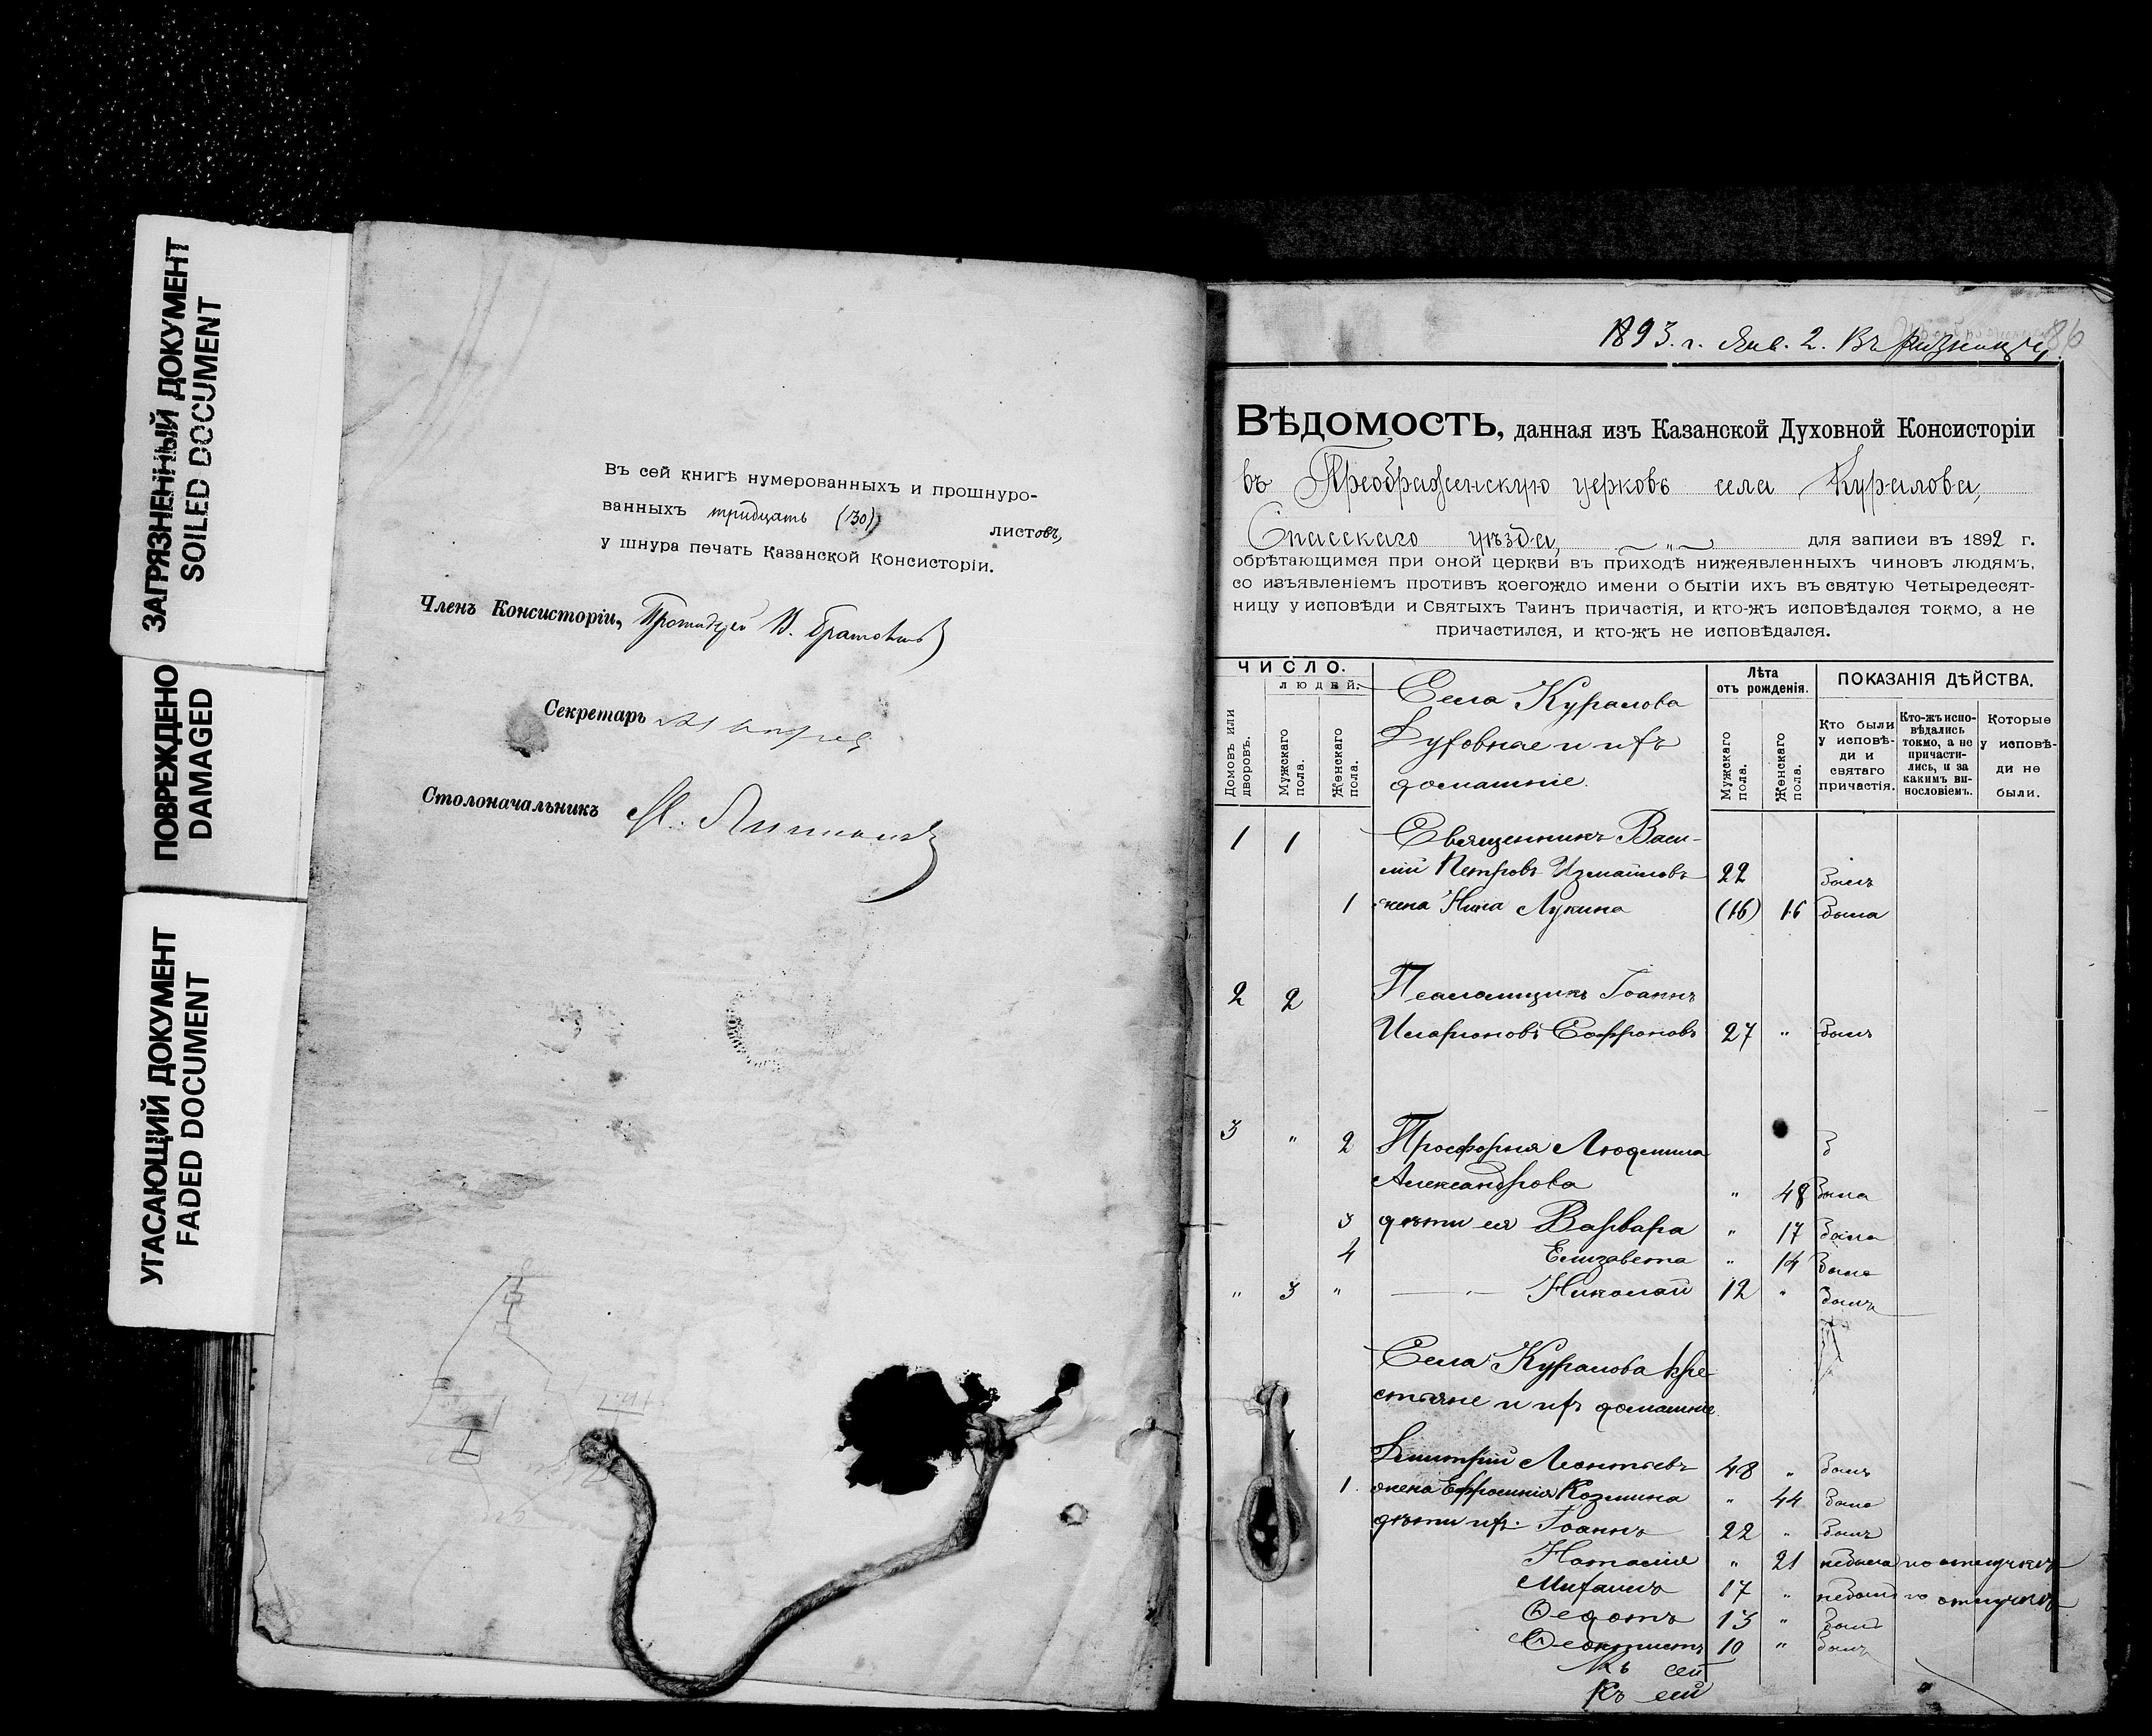 ЗАГРЯЗНЕННЫЙ ДОКУМЕНТ
SOILED DOCUMENT
ПОВРЕЖДЕНО
DAMAGED
УГАСАЮЩИЙ ДОКУМЕНТ
FADED DOCUMENT
Въ сей книгѣ нумерованныхъ и прошнуро-
ванныхъ тридцать (30) листовъ,
у шнура печать Казанской Консисторіи.
Членъ Консисторіи, Протоіерей В. Братолюбовъ
Секретарь
Столоначальникъ М.
1893. г. Янв. 2. Въ ризницу.
86
ВѢДОМОСТЬ, данная изъ Казанской Духовной Консисторіи
въ Преображенскую церковь села Куралова,
Спасскаго уѣзда, „ для записи въ 1892 г.
обрѣтающимся при оной церкви въ приходѣ нижеявленныхъ чиновъ людямъ,
со изъявленіемъ противъ коегождо имени о бытіи ихъ въ святую Четыредесят-
ницу у исповѣди и Святыхъ Таинъ причастія, и кто-жъ исповѣдался токмо, а не
причастился, и кто-жъ не исповѣдался.
ЧИСЛО.
людей.
Домовъ или дворовъ.
Мужскаго пола.
Женскаго пола.
Села Куралова
Духовные и ихъ
домашніе.
Лѣта
отъ рожденія.
Мужскаго пола.
Женскаго пола.
ПОКАЗАНІЯ ДѢЙСТВА.
Кто были
у исповѣ-
ди и
святаго
причастія.
Кто-жъ испо-
вѣдались
токмо, а не
причасти-
лись, и за
какимъ ви-
нословіемъ.
Которые
у исповѣ-
ди не
были.
1 1 Священникъ Васи-
лій Петровъ Измайловъ 22 былъ
1 жена Нина Лукина (16) 16 была
2 2 Псаломщикъ Іоаннъ
Иларіоновъ Софроновъ 27 „ былъ
3 „ 2 Просфорня Людмила
Александрова „ 48 была
3 дѣти ея Варвара „ 17 была
4 Елизавета „ 14 была
„ 3 „ — „ — Николай 12 „ былъ
Села Куралова кре-
стьяне и ихъ домашніе
Димитрій Леонтьевъ 48 „ былъ
1 жена Ефросинія Козмина „ 44 была
дѣти ихъ: Іоаннъ 22 „ былъ
Наталія „ 21 небыла по отлучкѣ
Михаилъ 17 „ небылъ по отлучкѣ
Ѳедотъ 13 „ былъ
Ѳеоктистъ 10 „ былъ
Къ сей
Къ сей